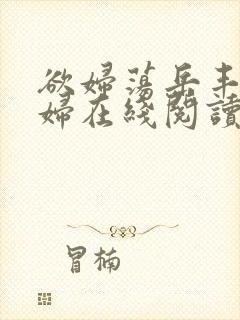 欲婦蕩岳丰
婦在綫閱讀
冒楠